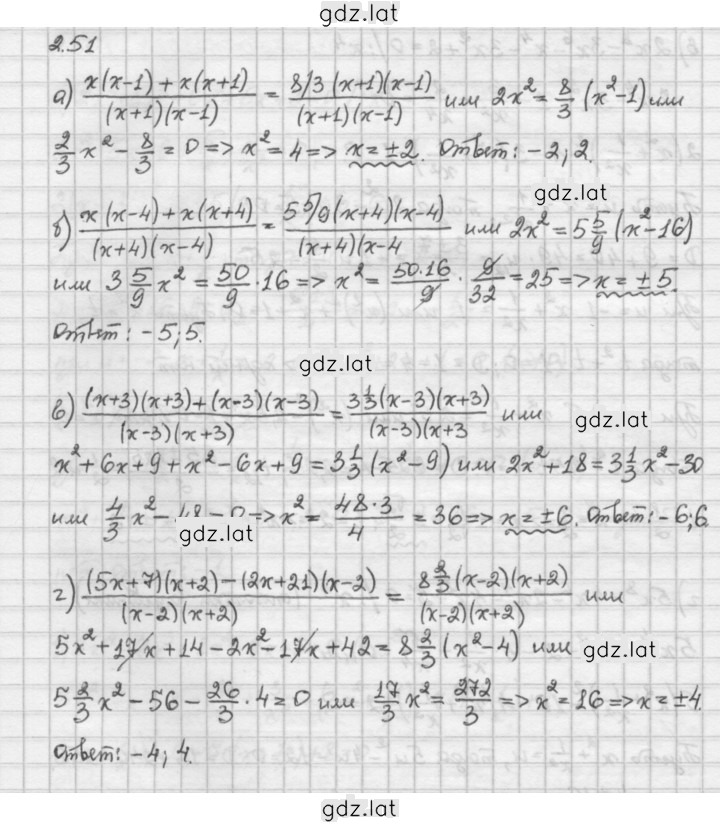 gdz.lat
2.51
а) \frac{x(x-1)+x(x+1)}{(x+1)(x-1)} = \frac{8/3(x+1)(x-1)}{(x+1)(x-1)} или 2x² = \frac{8}{3}(x²-1) или
\frac{2}{3}x² - \frac{8}{3} = 0 => x² = 4 => x = ±2. Ответ: -2; 2.
gdz.lat
б) \frac{x(x-4)+x(x+4)}{(x+4)(x-4)} = \frac{5 5/9(x+4)(x-4)}{(x+4)(x-4} или 2x² = 5\frac{5}{9}(x²-16)
или 3\frac{5}{9}x² = \frac{50}{9}·16 => x² = \frac{50·16}{9}·\frac{9}{32} = 25 => x = ±5.
Ответ: -5; 5.
gdz.lat
в) \frac{(x+3)(x+3)+(x-3)(x-3)}{(x-3)(x+3)} = \frac{3\frac{1}{3}(x-3)(x+3)}{(x-3)(x+3} или
gdz.lat
x²+6x+9+x²-6x+9 = 3\frac{1}{3}(x²-9) или 2x²+18 = 3\frac{1}{3}x²-30
или \frac{4}{3}x² - 48 = 0 => x² = \frac{48·3}{4} = 36 => x = ±6. Ответ: -6; 6.
gdz.lat
г) \frac{(5x+7)(x+2)-(2x+21)(x-2)}{(x-2)(x+2)} = \frac{8\frac{2}{3}(x-2)(x+2)}{(x-2)(x+2)} или
5x²+17x+14-2x²-17x+42 = 8\frac{2}{3}(x²-4) или
gdz.lat
5\frac{2}{3}x² - 56 - \frac{26}{3}·4 = 0 или \frac{17}{3}x² = \frac{272}{3} => x² = 16 => x = ±4.
Ответ: -4; 4.
gdz.lat